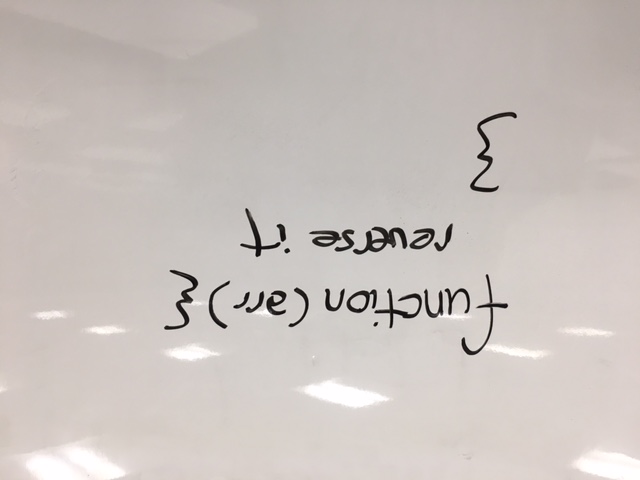 function (arr) {
reverse it
}